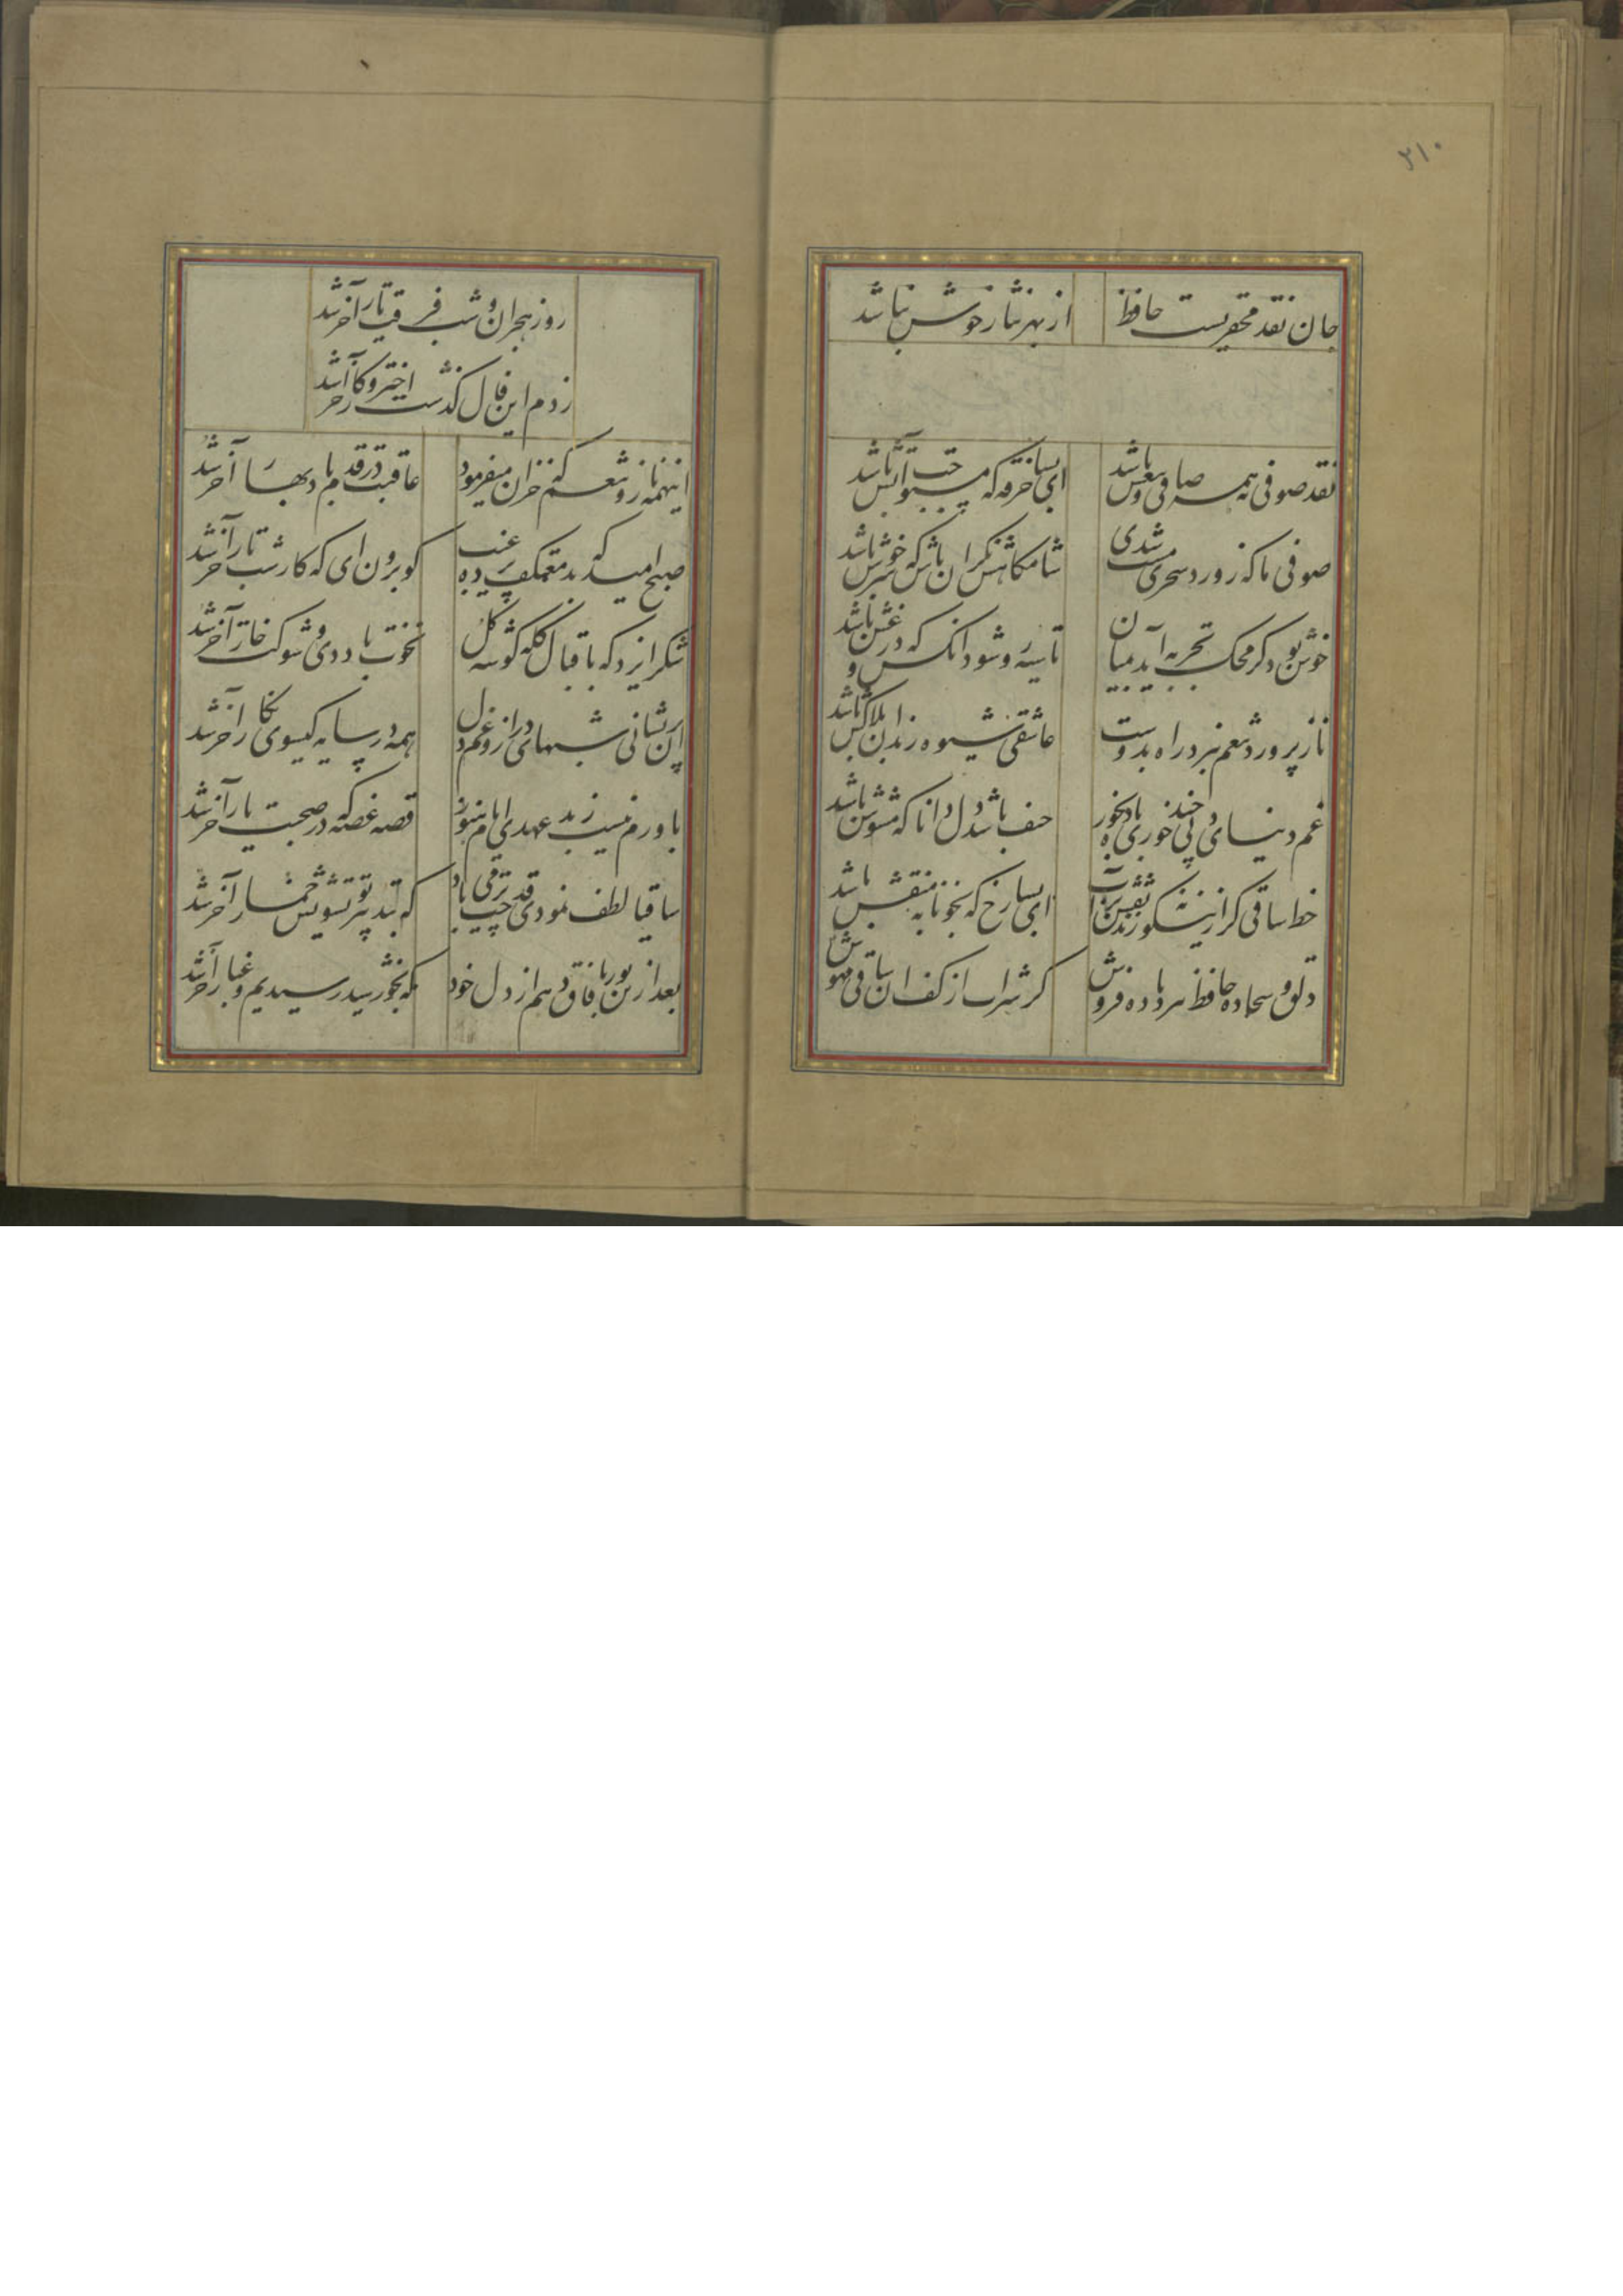 ۲۱۰
جان نقد محقریست حافظ از بهر نثار خوش نباشد
نقد صوفی نه همه صافی و بیغش باشد ای بسا خرقه که مستوجب آتش باشد
صوفی ما که ز ورد سحری مست شدی شامکاهش نکران باش که سرخوش باشد
خوش بود کر محک تجربه آید بمیان تا سیه روی شود انکس که درو غش باشد
ناز پرورد تنعم نبرد راه بدوست عاشقی شیوه رندان بلاکش باشد
غم دنیای دنی چند خوری باده بخور حیف باشد دل دانا که مشوش باشد
خط ساقی کر ازینکونه زند نقش بر آب ای بسا رخ که بخونابه منقش باشد
دلق و سجاده حافظ ببرد باده فروش کر شراب از کف ان ساقی مهوش
روز هجران و شب فرقت یار آخر شد
زدم این فال کذشت اختر و کار آخر شد
اینهمه ناز و تنعم که خزان میفرمود عاقبت در قدم باد بهار آخر شد
صبح امید که بد معتکف پرده غیب کو برون ای که کار شب تار آخر شد
شکر ایزد که باقبال کله کوشه کل نخوت باد دی و شوکت خار آخر شد
ان پریشانی شبهای دراز و غم دل همه در سایه کیسوی نکار آخر شد
باورم نیست ز بد عهدی ایام هنوز قصه غصه که در صحبت یار آخر شد
ساقیا لطف نمودی قدحت پر می باد که بتدبیر تو تشویش خمار آخر شد
بعد ازین نور بافاق دهم از دل خود که بخورشید رسیدیم و غبار آخر شد